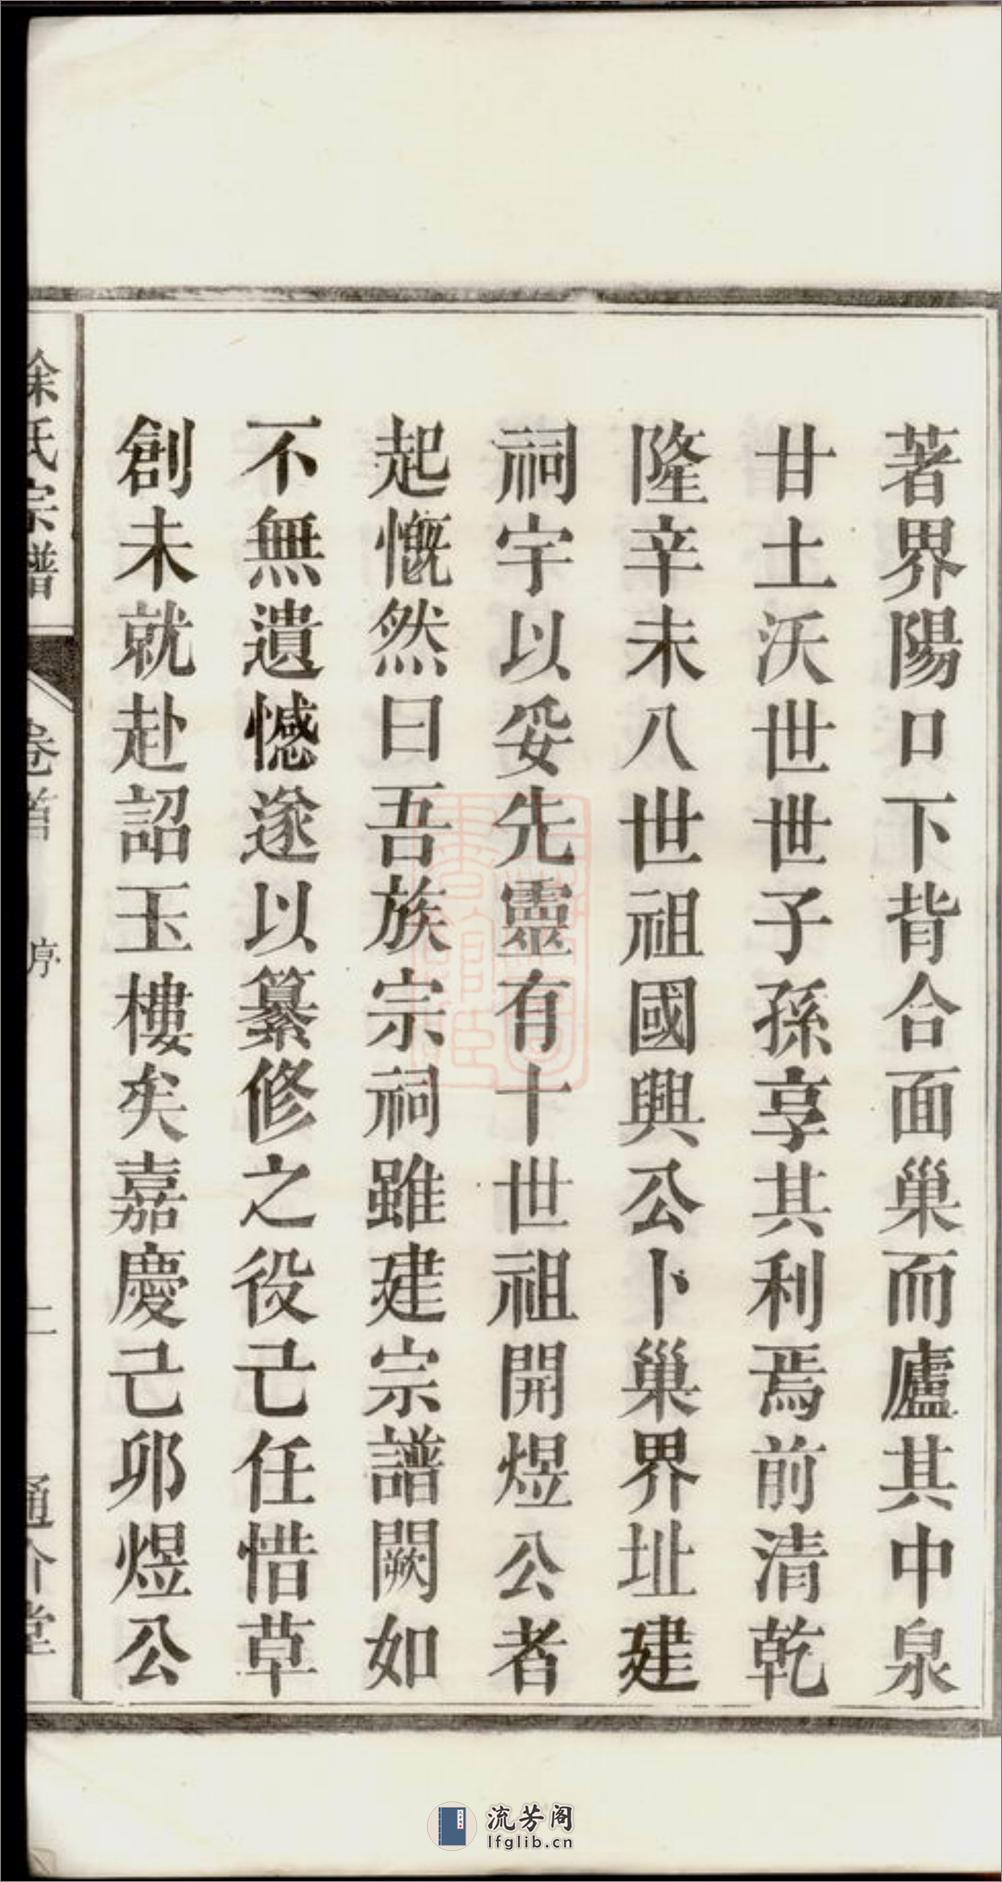 著界陽口下背合面巢而廬其中泉
甘土沃世世子孫享其利焉前清乾
隆辛未八世祖國興公卜巢界址建
祠宇以妥先靈有十世祖開煜公者
起慨然曰吾族宗祠雖建宗譜闕如
不無遺憾遂以纂修之役己任惜草
創未就赴詔玉樓矣嘉慶己卯煜公
徐氏宗譜 卷首 序 二 通介堂
流芳阁
lfglib.cn